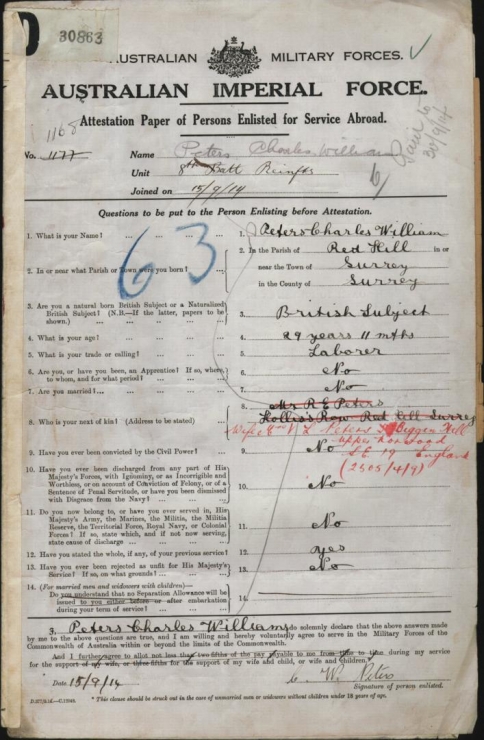 30863
AUSTRALIAN MILITARY FORCES.
AUSTRALIAN IMPERIAL FORCE.
Attestation Paper of Persons Enlisted for Service Abroad.
1168
No. 1177 Name Peters Charles William
Unit 8th Batt Reinfts
Joined on 15/9/14
63
Questions to be put to the Person Enlisting before Attestation.
1. What is your Name? ... 1. Peters Charles William
2. In or near what Parish or Town were you born? ... 2. In the Parish of Red Hill in or
near the Town of Surrey
in the County of Surrey
3. Are you a natural born British Subject or a Naturalized British Subject? (N.B.—If the latter, papers to be shown.) 3. British Subject
4. What is your age? 4. 29 years 11 mths
5. What is your trade or calling? 5. Laborer
6. Are you, or have you been, an Apprentice? If so, where, to whom, and for what period? 6. No
7. Are you married? 7. No
8. Who is your next of kin? (Address to be stated) 8. Mr R E Peters
Hollis's Row Red Hill Surrey
Wife Peters Beggar Hill
Upper Norwood
S.E 19 England
(2505/4/9)
9. Have you ever been convicted by the Civil Power? 9. No
10. Have you ever been discharged from any part of His Majesty's Forces, with Ignominy, or as Incorrigible and Worthless, or on account of Conviction of Felony, or of a Sentence of Penal Servitude, or have you been dismissed with Disgrace from the Navy? 10. No
11. Do you now belong to, or have you ever served in, His Majesty's Army, the Marines, the Militia, the Militia Reserve, the Territorial Force, Royal Navy, or Colonial Forces? If so, state which, and if not now serving, state cause of discharge 11. No
12. Have you stated the whole, if any, of your previous service? 12. yes
13. Have you ever been rejected as unfit for His Majesty's Service? If so, on what grounds? 13. No
14. (For married men and widowers with children)—
Do you understand that no Separation Allowance will be issued to you either before or after embarkation during your term of service? 14.
I, Peters Charles William do solemnly declare that the above answers made
by me to the above questions are true, and I am willing and hereby voluntarily agree to serve in the Military Forces of the
Commonwealth of Australia within or beyond the limits of the Commonwealth.
And I further agree to allot not less than two-fifths of the pay payable to me from time to time during my service
for the support of my wife, or three-fifths for the support of my wife and child, or wife and children.*
Date 15/9/14 C. W. Peters
Signature of person enlisted.
* This clause should be struck out in the case of unmarried men or widowers without children under 18 years of age.